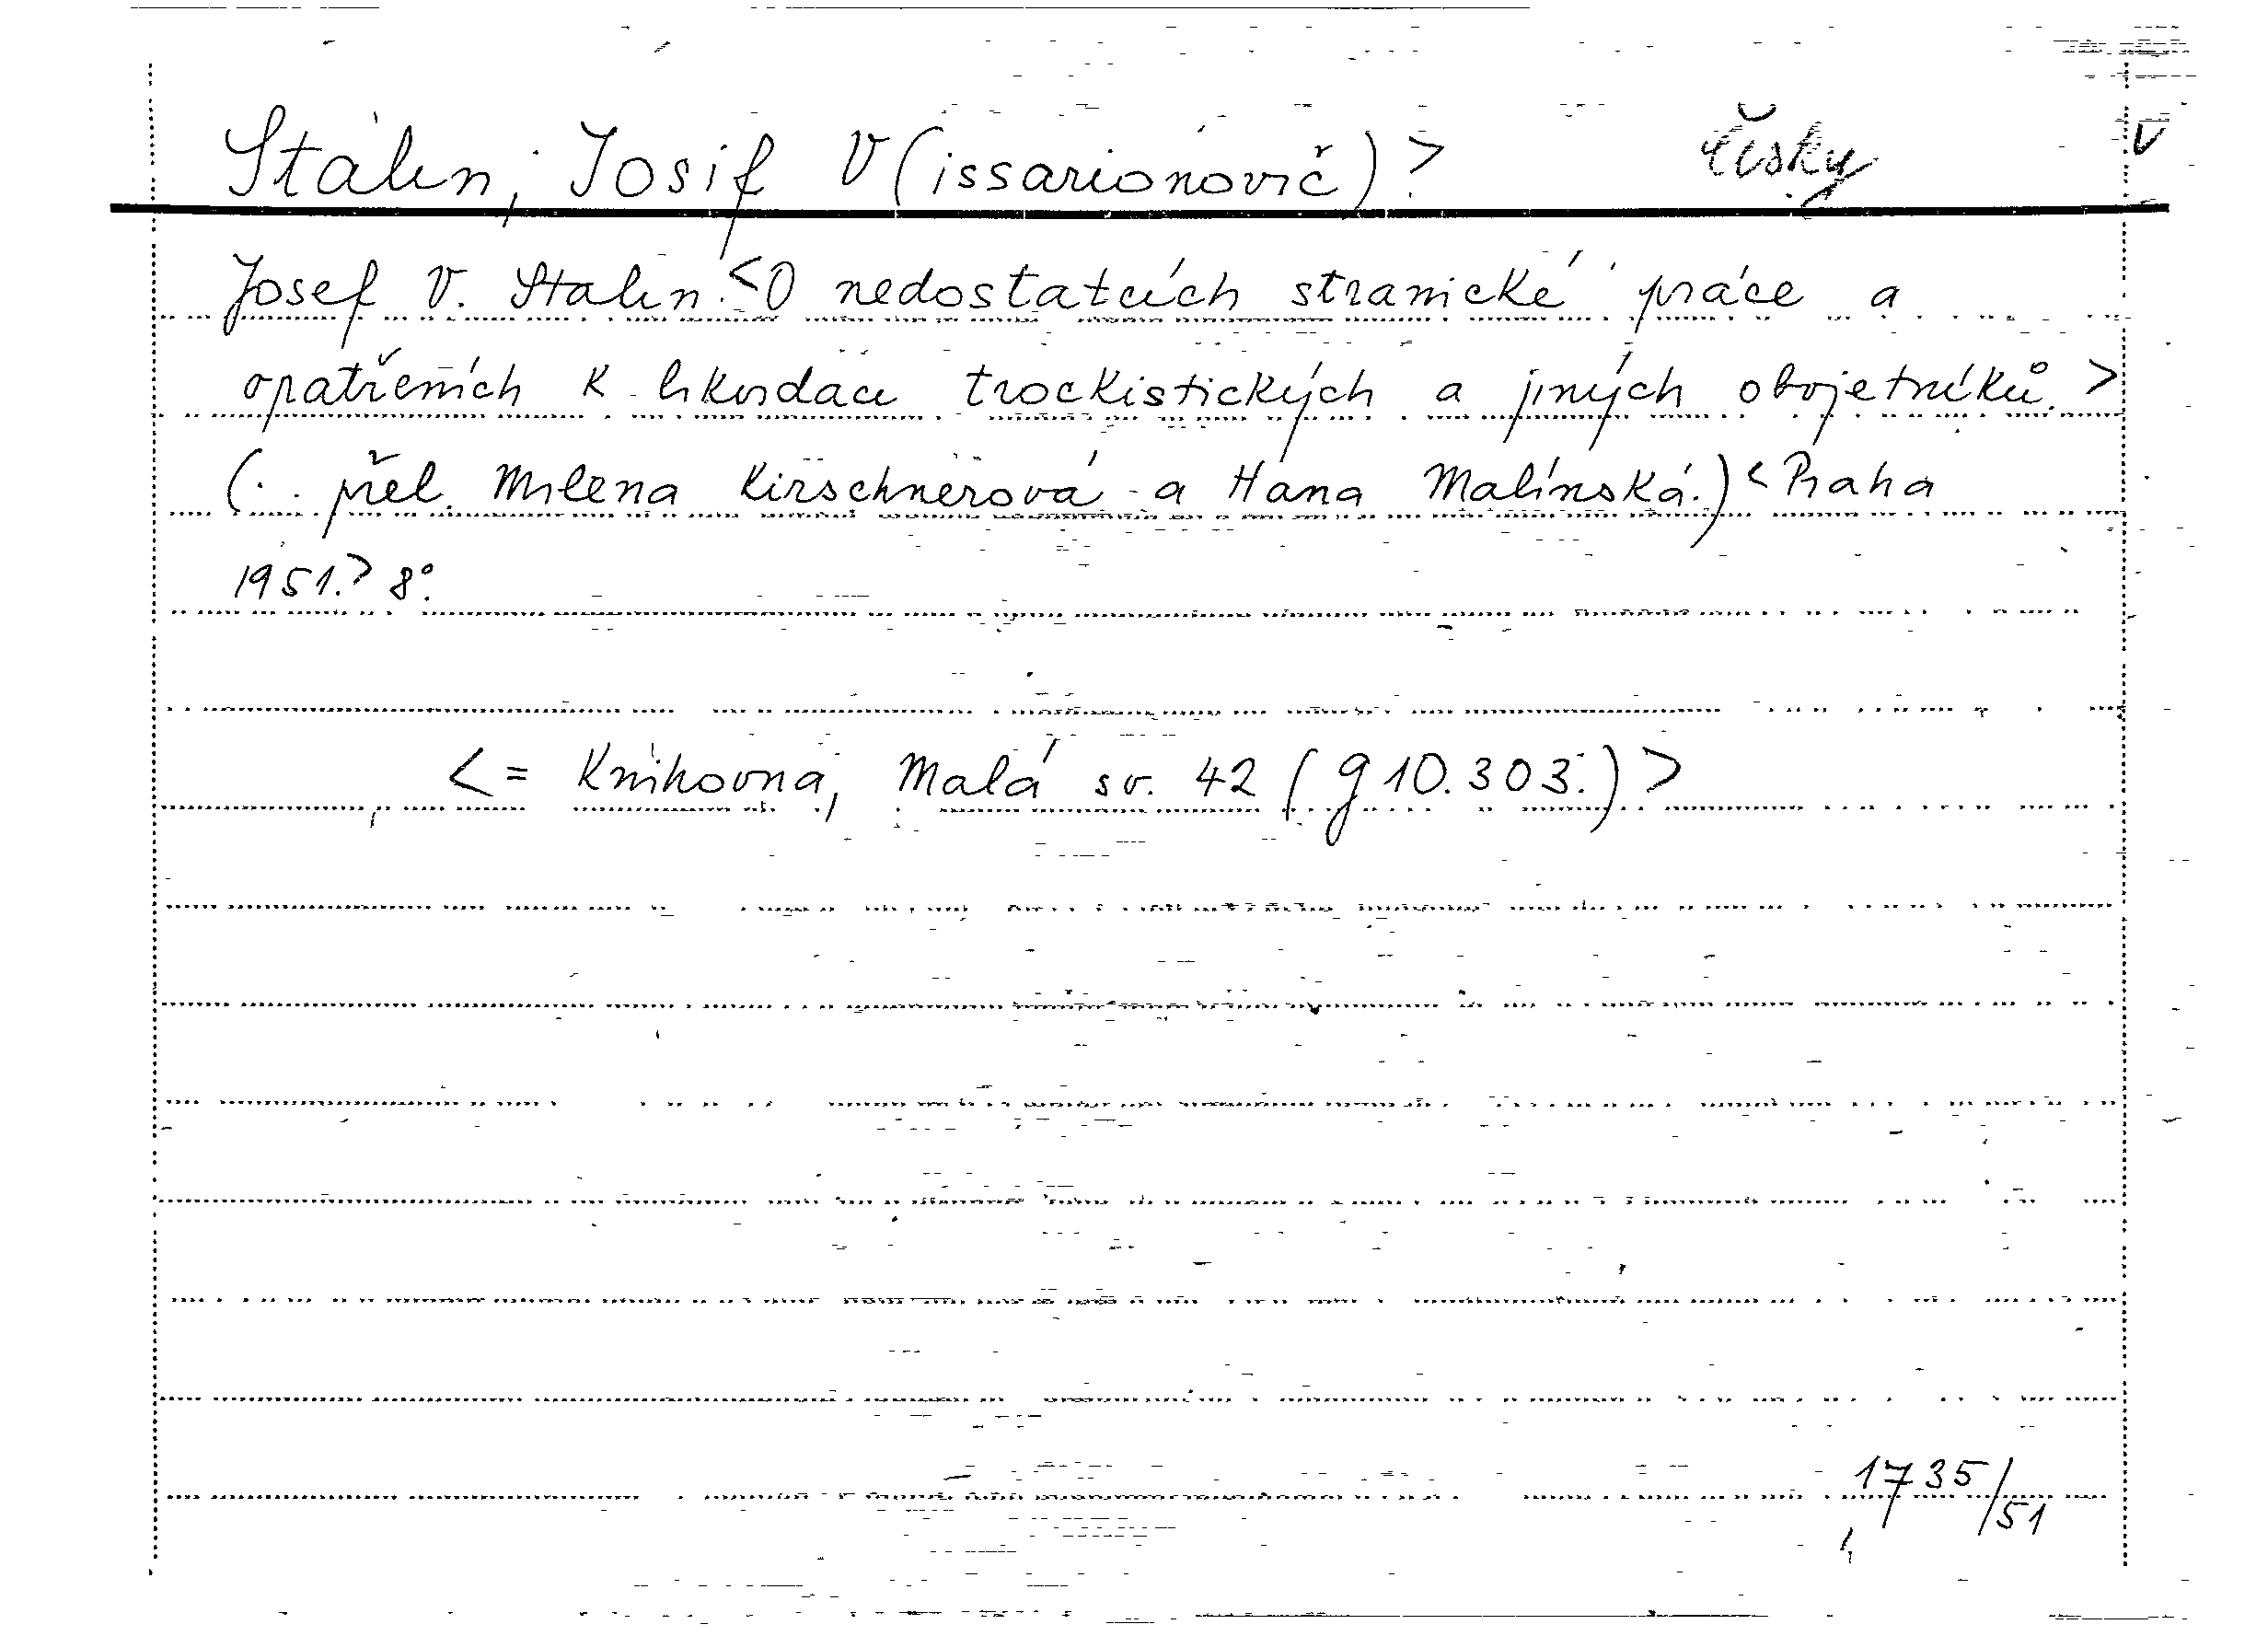 Stalin, Josif V(issarionovič)> česky V
Josef V. Stalin: <O nedostatcích stranické práce a
opatřeních k likvidaci trockistických a jiných obojetníků.>
(.. přel. Milena Kirschnerová a Hana Malínská.) <Praha
1951.> 8°.
<= Knihovna, Malá sv. 42 (g 10.303.)>
1735/51